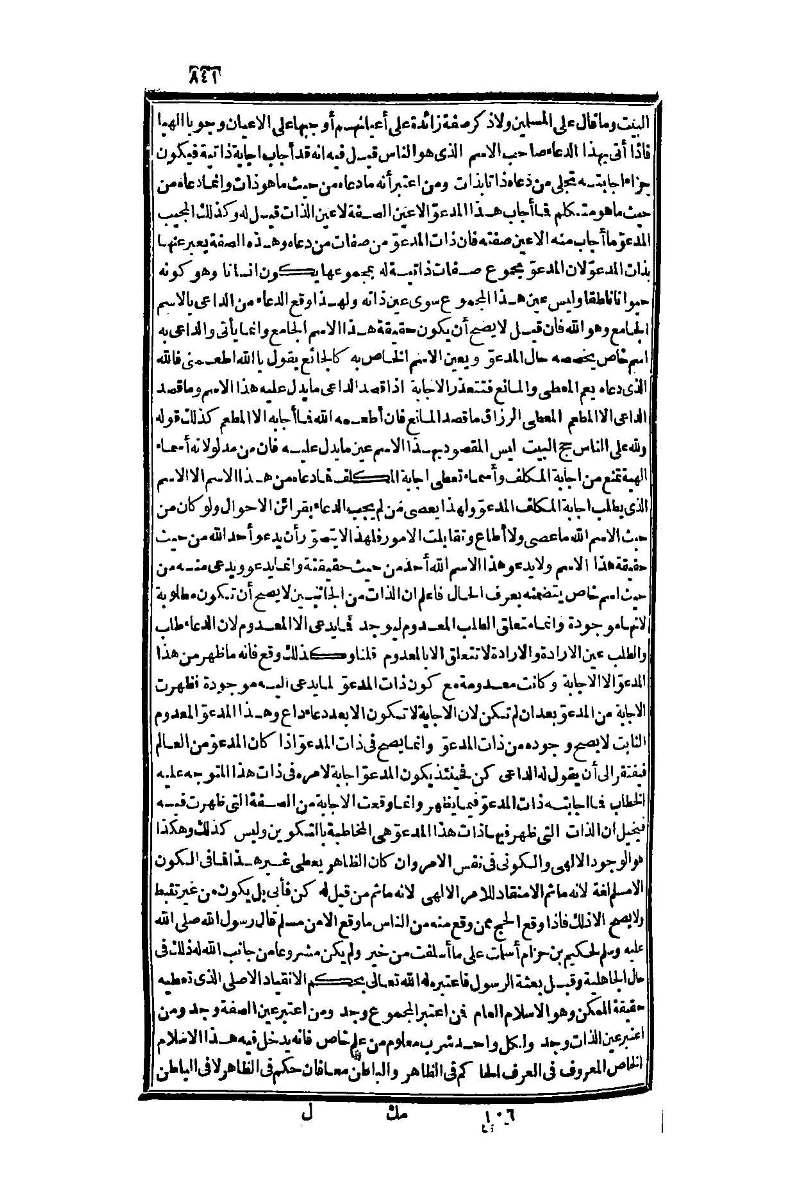 ٨٤١
البيت وما قال على المسلمين ولا ذكر صفة زائدة على أعيانهم أوجبها على الاعيان وجوبا الهيا
فاذا أتى بهذا الدعاء صاحب الاسم الذى هو الناس قيل فيه انه قد أجاب اجابة ذاتية فيكون
جزاء اجابته تجلى من دعاه ذاتا بذات ومن اعتبر أنه ما دعاه من حيث ما هو ذات وانما دعاه من
حيث ما هو متكلم فما أجاب هذا المدعوّ الاعين الصفة لاعين الذات قيل له وكذلك المجيب
المدعوّ ما أجاب منه الاعين صفته فان ذات المدعوّ من صفات من دعاه وهذه الصفة يعبر عنها
بذات المدعوّ لان المدعوّ مجموع صفات ذاتية له بمجموعها يكون انسانا وهو كونه
حيوانا ناطقا وليس عين هذا المجموع سوى عين ذاته ولهذا وقع الدعاء من الداعى بالاسم
الجامع وهو الله فان قيل لا يصح أن يكون حقيقة هذا الاسم الجامع وانما يأتى والداعى به
اسم خاص يخصصه حال المدعوّ ويعين الاسم الخاص به كالجائع يقول يا الله اطعمنى فالله
الذى دعاه يعم المعطى والمانع فتتعذر الاجابة اذا قصد الداعى ما يدل عليه هذا الاسم وما قصد
الداعى الا المطعم المعطى الرزاق ما قصد المانع فان أطعمه الله فما أجابه الا المطعم كذلك قوله
ولله على الناس حج البيت ليس المقصود بهذا الاسم عين ما يدل عليه فان من مدلولاته أسماء
الهية تمنع من اجابة المكلف وأسماء تعطى اجابة المكلف فما دعاه من هذا الاسم الا الاسم
الذى يطلب اجابة المكلف المدعوّ ولهذا يعصى من لم يجب الدعاء بقرائن الاحوال ولو كان من
حيث الاسم الله ما عصى ولا أطاع وتقابلت الامور فلهذا لا يتصوّر أن يدعو أحد الله من حيث
حقيقة هذا الاسم ولا يدعو هذا الاسم الله أحد من حيث حقيقته وانما يدعو ويدعى منه من
حيث اسم خاص يتضمنه يعرف الحال فاعلم ان الذات من الجانبين لا يصح أن تكون مطلوبة
لانها موجودة وانما متعلق الطلب المعدوم ليوجد فما يدعى الا المعدوم لان الدعاء طلب
والطلب عين الارادة والارادة لا تتعلق الا بالمعدوم قلنا وكذلك وقع فانه ما ظهر من هذا
المدعوّ الا الاجابة وكانت معدومة مع كون ذات المدعوّ لما يدعى اليه موجودة فظهرت
الاجابة من المدعوّ بعد ان لم تكن لان الاجابة لا تكون الا بعد دعاء داع وهذا المدعوّ المعدوم
الثابت لا يصح وجوده من ذات المدعوّ وانما يصح فى ذات المدعوّ اذا كان المدعوّ من العالم
فيفتقر الى أن يقول له الداعى كن فحينئذ يكون المدعوّ اجابة لامره فى ذات هذا المتوجه عليه
الخطاب فما اجابته ذات المدعوّ فيما يظهر وانما وقعت الاجابة من الصفة التى ظهرت فيه
فيتخيل ان الذات التى ظهر فيها ذات هذا المدعوّ هى المخاطبة بالتكوين وليس كذلك وهكذا
هو الوجود الالهى والكونى فى نفس الامر وان كان الظاهر يعطى غير هذا فما فى الكون
الا مسلم لغة لانه ما ثم الا منقاد للامر الالهى لانه ما ثم من قيل له كن فأبى بل يكون من غير تثبط
ولا يصح الا ذلك فاذا وقع الحج ممن وقع منه من الناس ما وقع الا من مسلم قال رسول الله صلى الله
عليه وسلم لحكيم بن حزام أسلمت على ما أسلفت من خير ولم يكن مشروعا من جانب الله له ذلك فى
حال الجاهلية وقبل بعثة الرسول فاعتبره له الله تعالى بحكم الانقياد الاصلى الذى تعطيه
حقيقة الممكن وهو الاسلام العام فمن اعتبر المجموع وجد ومن اعتبر عين الصفة وجد ومن
اعتبر عين الذات وجد ولكل واحد شرب معلوم من علم خاص فانه يدخل فيه هذا الاسلام
الخاص المعروف فى العرف الحاكم فى الظاهر والباطن معا فان حكم فى الظاهر لا فى الباطن
١٠٦ مك ل